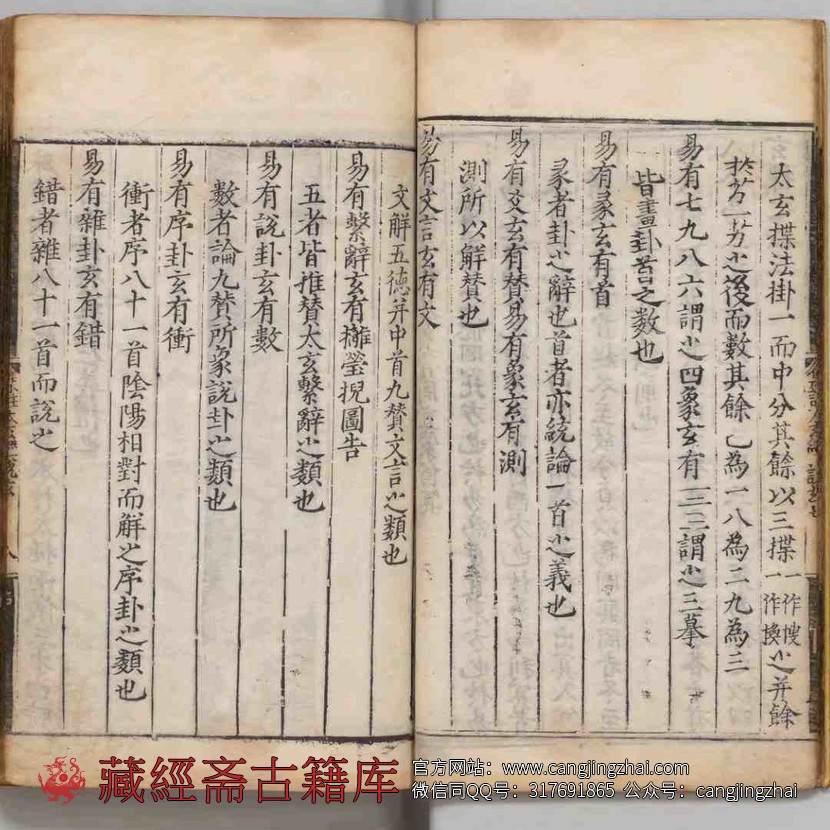 太玄揲法掛一而中分其餘以三揲一作㨶一作換之并餘
於艻一艻之後而數其餘七為一八為二九為三
易有七九八六謂之四象玄有一二三謂之三摹
皆畫卦首之數也
易有彖玄有首
彖者卦之辭也首者亦統論一首之義也
易有爻玄有贊易有象玄有測
測所以解贊也
易有文言玄有文
文解五德并中首九贊文言之類也
易有繫辭玄有攡瑩掜圖告
五者皆推贊太玄繫辭之類也
易有說卦玄有數
數者論九贊所象說卦之類也
易有序卦玄有衝
衝者序八十一首陰陽相對而解之序卦之類也
易有雜卦玄有錯
錯者雜八十一首而說之
八
藏經斋古籍库
官方网站：www.cangjingzhai.com
微信同QQ号：317691865 公众号：cangjingzhai